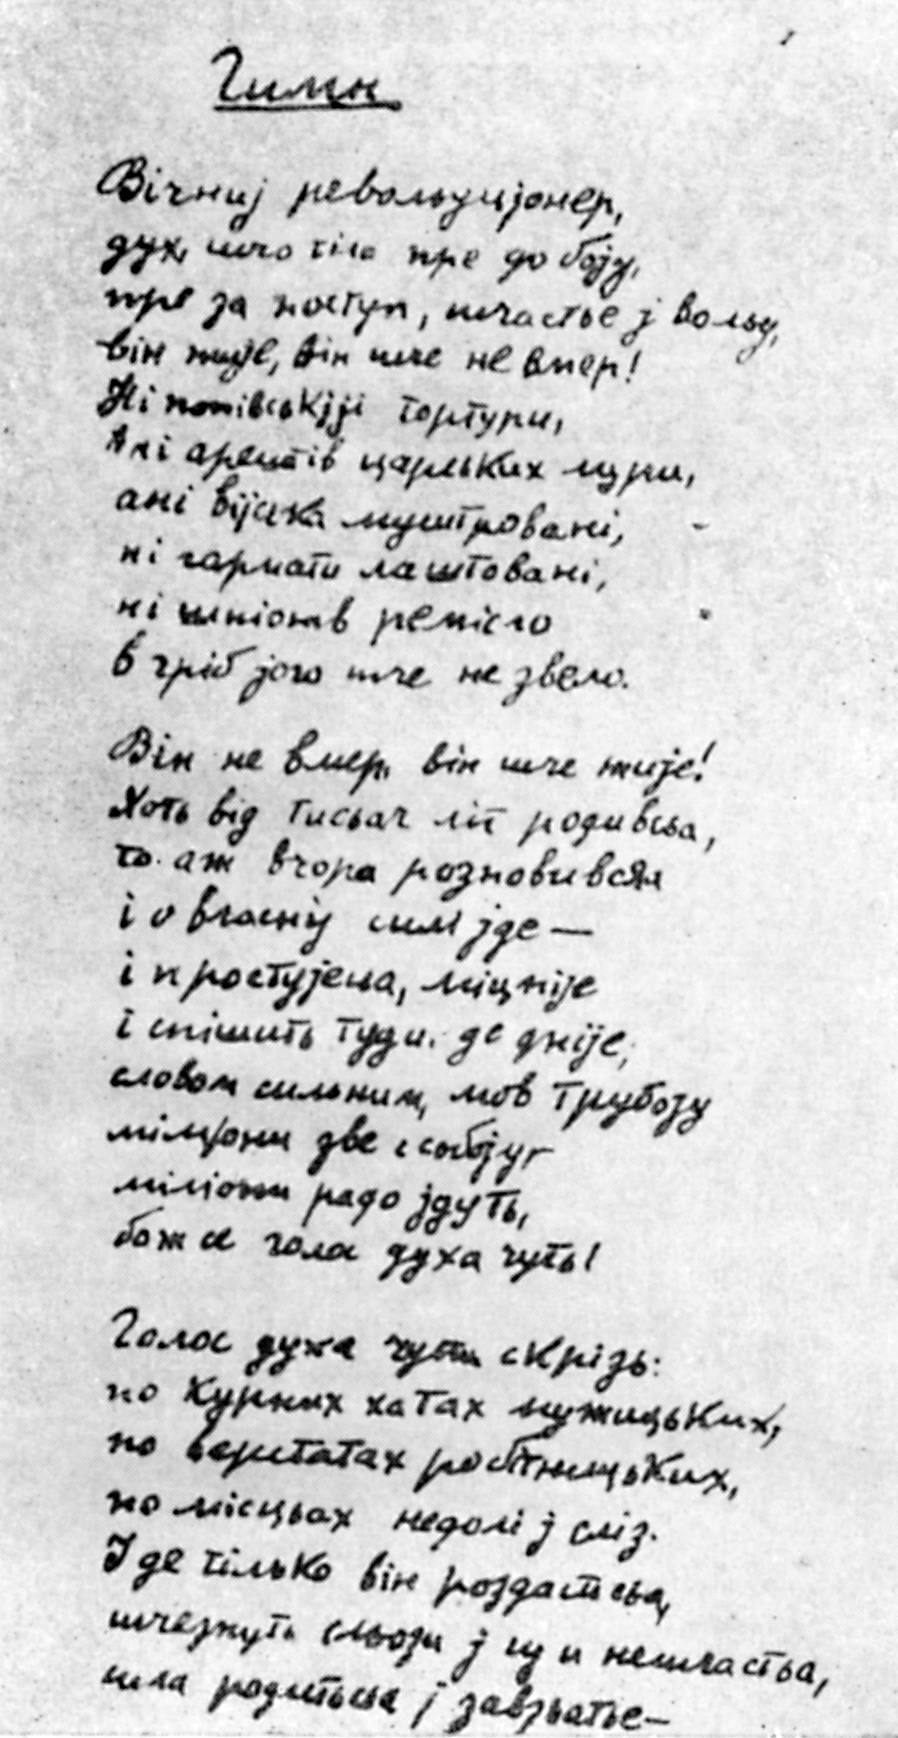 Гимн
Вічниј револьуціјонер,
дух, шчо тіло пре до боју,
пре за поступ, шчастье ј вольу,
він жије, він шче не вмер!
Ні попівськіјі тортури,
Ані арештів царських мури,
ані војська муштровані,
ні гармати лаштовані,
ні шпіонів ремісло
в гріб јого шче не звело.
Він не вмер, він шче жије!
Хоть від тисьач літ родивсьа,
то аж вчора розповивсьа
і о власніј силі јде —
і простујесьа, міцніје
і спішить туди, де дніје;
словом сильним, мов трубоју
міліони зве с собоју, —
міліони радо јдуть,
бож се голос духа чуть!
Голос духа чути скрізь:
по курних хатах мужицьких,
по верстатах робітницьких,
по місцьах недолі ј сліз.
І де тілько він роздастьсьа,
шчезнуть сльози ј нешчастьа,
сила родитьсьа ј завзьатье —